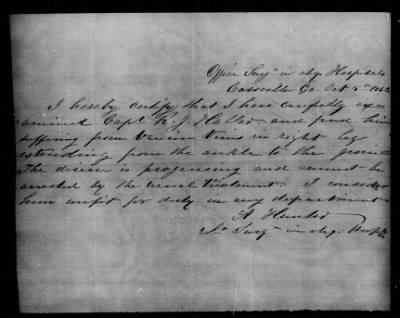 Office Surgn in chg. Hospitals
Cassville Ga. Oct 5th 1863
I hereby certify that I have carefully ex-
amined Capt. R. J. and find him
suffering from Varicose Veins in right leg
extending from the ankle to the groin
The disease is progressing and cannot be
arrested by the usual treatment. I consider
him unfit for duty in any department
A Hunter
Sr Surgn in chg. Hospts